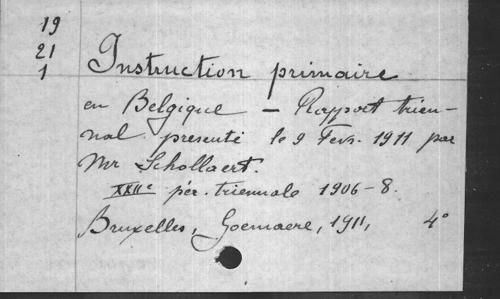 19
21
1
Instruction primaire
en Belgique – Rapport trien-
nal presenté le 9 Fevr. 1911 par
Mr Schollaert.
XXIIe pér. triennale 1906-8.
Bruxelles, Goemaere, 1911, 4°